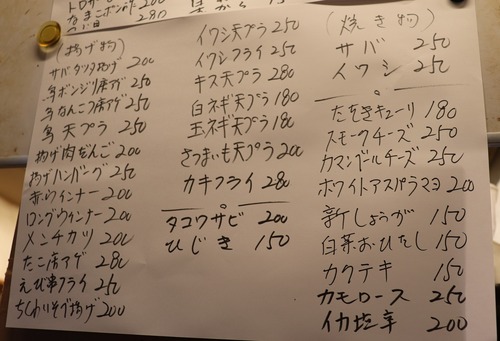 なまこポン酢 200
280
150
(揚げ物)
サバタツタ揚げ 200
鳥ボンジリ唐アゲ 250
鳥なんこつ唐アゲ 250
鳥天プラ 250
揚げ肉だんご 200
揚げハンバーグ 250
赤ウインナー 200
ロングウインナー 200
メンチカツ 200
たこ唐アゲ 280
えび串フライ 250
ちくわいそべ揚げ 200
イワシ天プラ 250
イワシフライ 250
キス天プラ 280
白ネギ天プラ 180
玉ネギ天プラ 180
さつまいも天プラ 200
カキフライ 280
タコワサビ 200
ひじき 150
(焼き物)
サバ 250
イワシ 250
たたきキューリ 180
スモークチーズ 250
カマンベールチーズ 250
ホワイトアスパラマヨ 200
新しょうが 150
白菜おひたし 150
カクテキ 150
カモロース 250
イカ塩辛 200